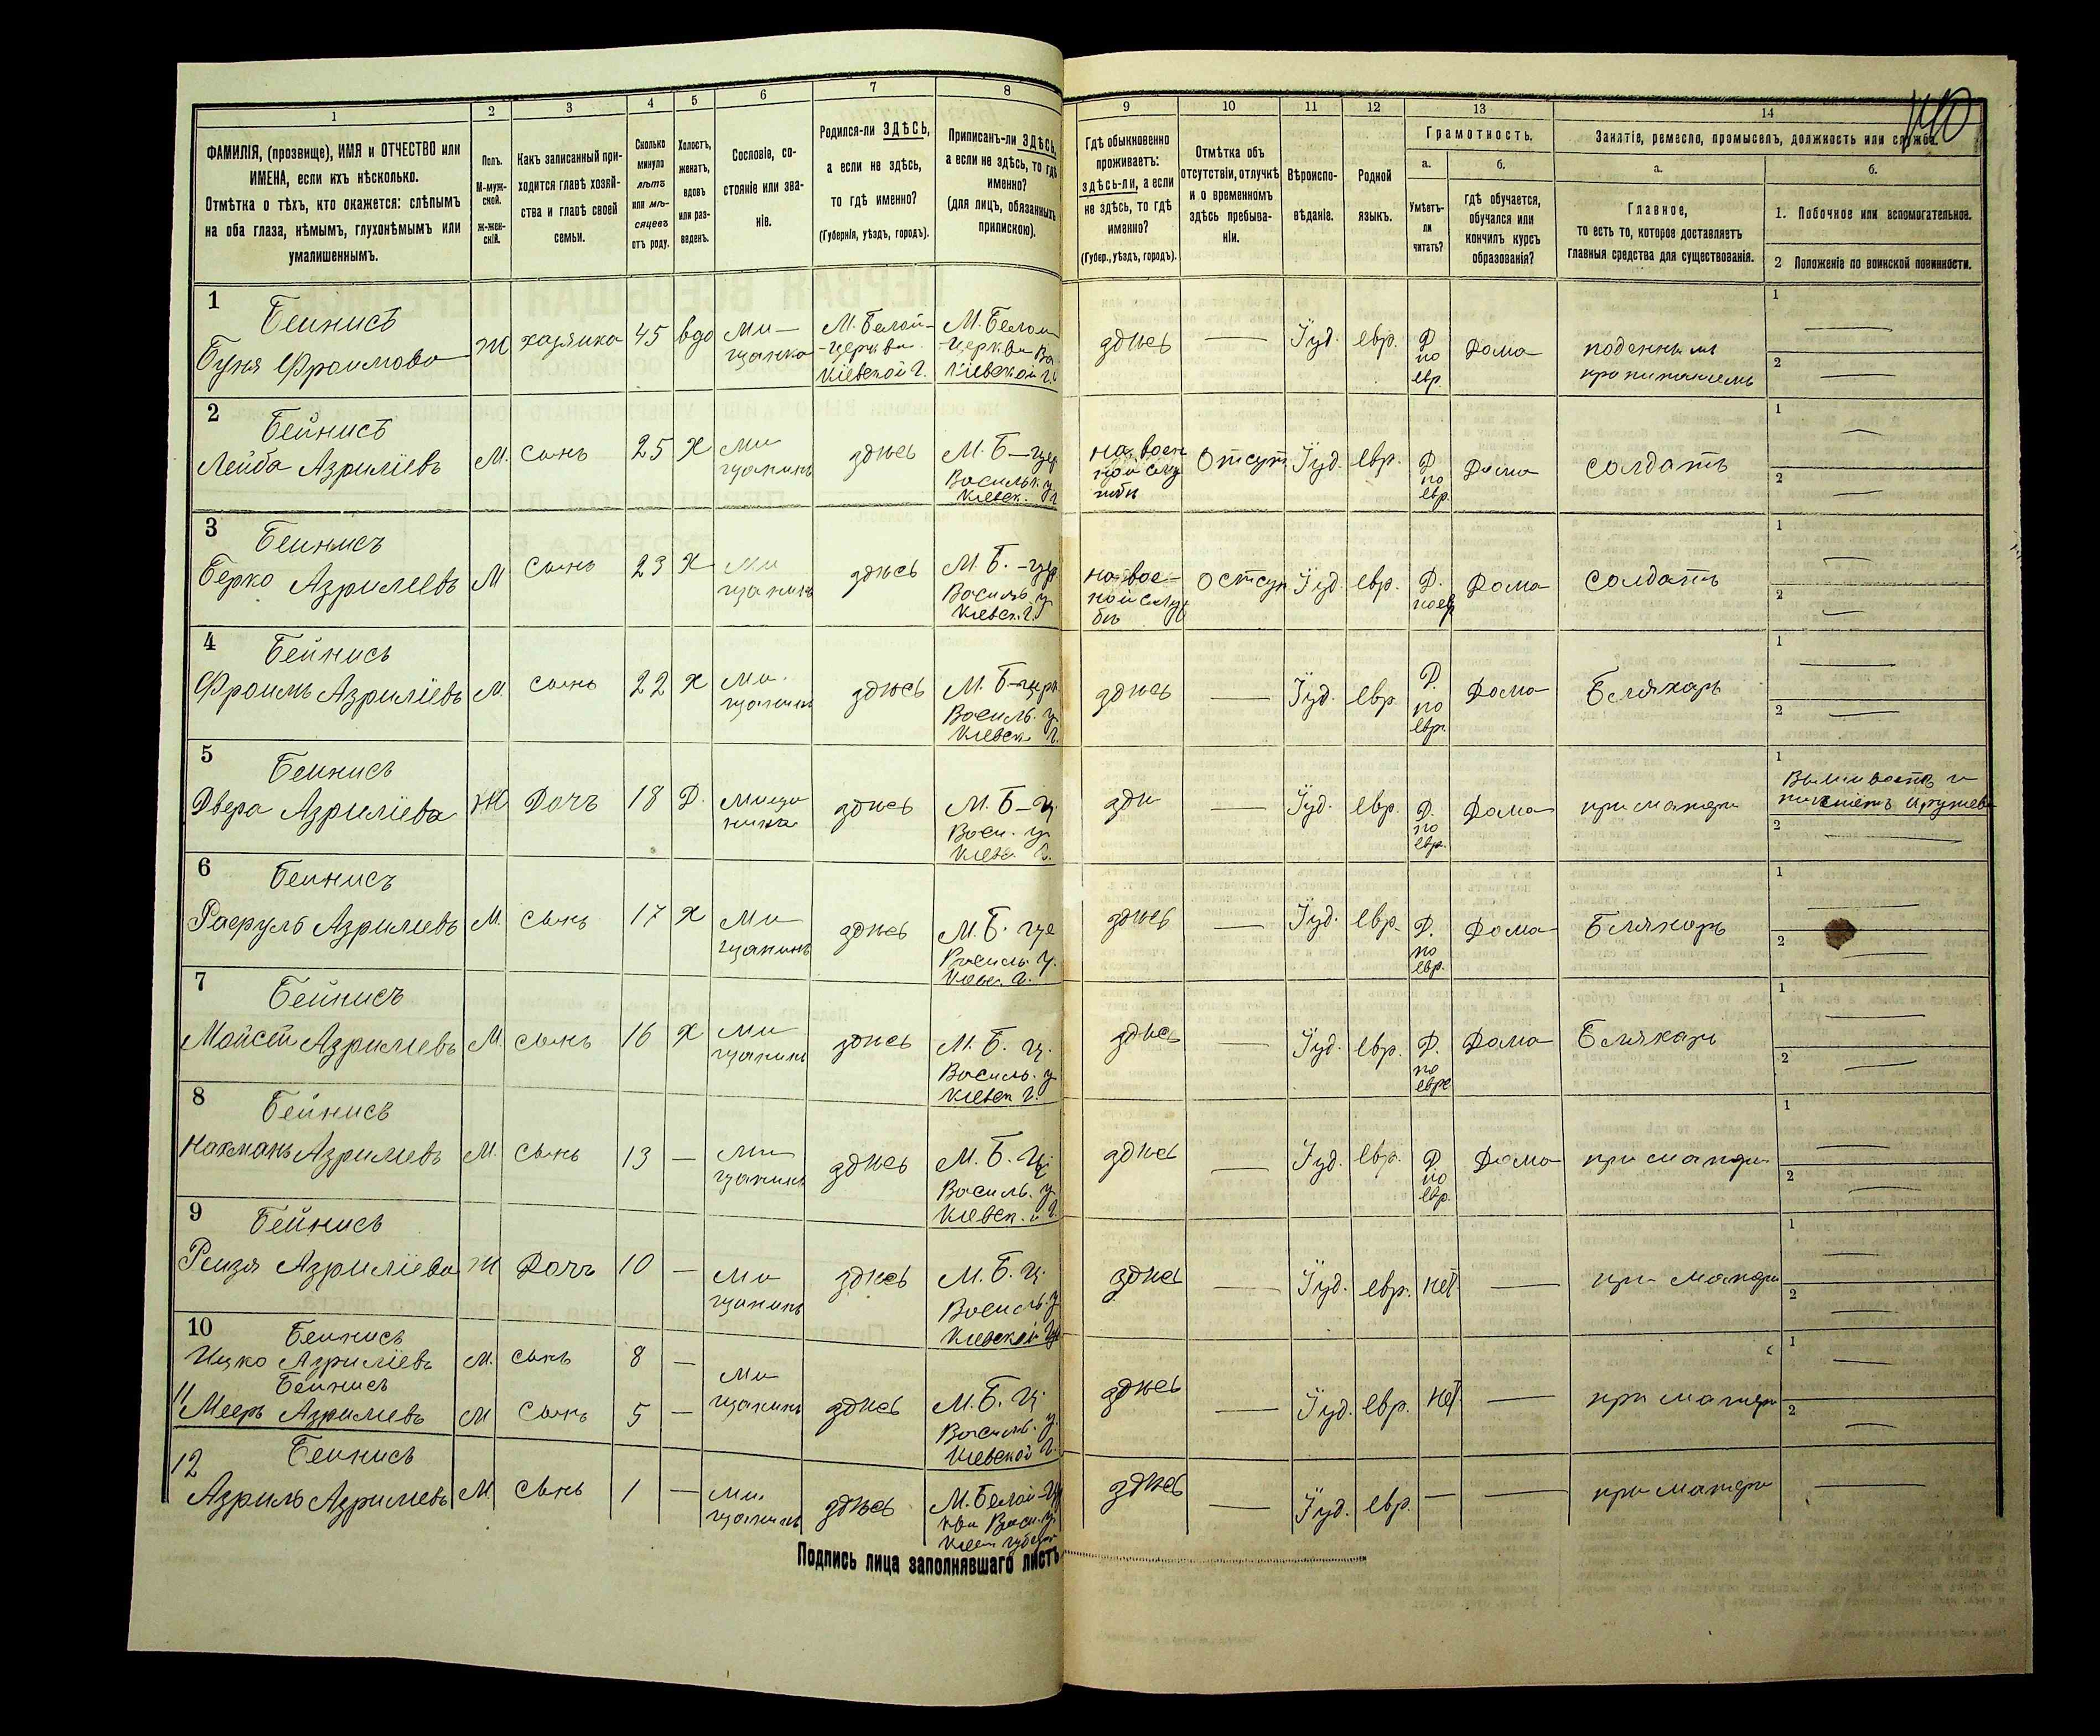 1
2
3
4
5
6
7
8
ФАМИЛІЯ, (прозвище), ИМЯ и ОТЧЕСТВО или
ИМЕНА, если ихъ нѣсколько.
Отмѣтка о тѣхъ, кто окажется: слѣпымъ
на оба глаза, нѣмымъ, глухонѣмымъ или
умалишеннымъ.
Полъ.
М-муж-
ской.
ж-жен-
скій.
Какъ записанный при-
ходится главѣ хозяй-
ства и главѣ своей
семьи.
Сколько
минуло
лѣтъ
или мѣ-
сяцевъ
отъ роду.
Холостъ,
женатъ,
вдовъ
или раз-
веденъ.
Сословіе, со-
стояніе или зва-
ніе.
Родился-ли ЗДѢСЬ,
а если не здѣсь,
то гдѣ именно?
(Губернія, уѣздъ, городъ).
Приписанъ-ли ЗДѢСЬ,
а если не здѣсь, то гдѣ
именно?
(для лицъ, обязанныхъ
припискою).
9
10
11
12
13
14
140
Гдѣ обыкновенно
проживаетъ:
здѣсь-ли, а если
не здѣсь, то гдѣ
именно?
(Губер., уѣздъ, городъ).
Отмѣтка объ
отсутствіи, отлучкѣ
и о временномъ
здѣсь пребыва-
ніи.
Вѣроиспо-
вѣданіе.
Родной
языкъ.
Грамотность.
а.
б.
Умѣетъ-
ли
читать?
Гдѣ обучается,
обучался или
кончилъ курсъ
образованія?
Занятіе, ремесло, промыселъ, должность или служба.
а.
б.
Главное,
то есть то, которое доставляетъ
главныя средства для существованія.
1. Побочное или вспомогательное.
2 Положеніе по воинской повинности.
1 Бейнисъ
Буня Фроимова Ж хозяйка 45 вдо Мѣ-
щанка
М. Белой-
-церкви
Кіевской г.
М. Белой
-церкви
Кіевской г.
здѣсь — Іуд. евр. Д
по
евр.
Дома
поденным
пропитаніемъ
1 —
2 —
2 Бейнисъ
Лейба Азриліевъ М. Сынъ 25 Х Мѣ
щанинъ
здѣсь
М. Б—цер
Васильк. у.
Кіевск. г.
на воен
ной слу
жбѣ
Отсут Іуд. евр. Д.
по
евр.
Дома солдатъ
1 —
2 —
3 Бейнисъ
Берко Азрилевъ М Сынъ 23 Х Мѣ
щанинъ
здѣсь
М. Б. -цер
Василь у
Кіевск. г.
на вое-
ной служ
бѣ
Отсут Іуд. евр. Д.
по евр
Дома солдатъ
1 —
2 —
4 Бейнисъ
Фроимъ Азриліевъ М. сынъ 22 Х Мѣ.
щанинъ
здѣсь
М. Б-церк.
Василь. у.
Кіевск г.
здѣсь — Іуд. евр. Д.
по
евр.
Дома Бляхарь
1 —
2 —
5 Бейнисъ
Двера Азриліева Ж Дочь 18 Д. Мѣща
нинка
здѣсь
М. Б—ц.
Васи. у
Кіевс. г.
здѣ — Іуд. евр. Д.
по
евр.
Дома при матери
1
2 —
6 Бейнисъ
Азрилевъ М. сынъ 17 Х Мѣ
щанинъ
здѣсь
М. Б. це
Василь. у.
Кіевс. г.
здѣсь — Іуд. евр. Д.
по
евр.
Дома Бляхарь
1 —
2 —
7 Бейнисъ
Мойсей Азрилевъ М. сынъ 16 Х Мѣ
щанинъ
здѣсь
М. Б. ц.
Василь. у
Кіевск г.
здѣсь — Іуд. евр. Д.
по
евре
Дома Бляхарь
1 —
2 —
8 Бейнисъ
Нахманъ Азрилевъ М. сынъ 13 — Мѣ
щанинъ
здѣсь
М. Б. ц.
Василь. у
Кіевск. г.
здѣсь — Іуд. евр. Д
по
евр.
Дома при матери
1 —
2 —
9 Бейнисъ
Рейзя Азриліева Ж Дочь 10 — Мѣ
щанинъ
здѣсь
М. Б. ц.
Василь. у
Кіевской г
здѣсь — Іуд. евр. нѣт — при матери
1 —
2 —
10 Бейнисъ
Ицко Азриліевъ М. сынъ 8 —
11 Бейнисъ
Мееръ Азрилевъ М Сынъ 5 — Мѣ
щанинъ
здѣсь
М. Б. ц
Василь. у.
Кіевской г.
здѣсь — Іуд. евр. нѣт. — при матери
1 —
2 —
12 Бейнисъ
Азриль Азрилевъ М. Сынъ 1 — Мѣ.
щанинъ
здѣсь
М. Белой-Цер
кви Васи. у.
Кіев губерн
здѣсь — Іуд. евр. — — при матери —
Подпись лица заполнявшаго листъ